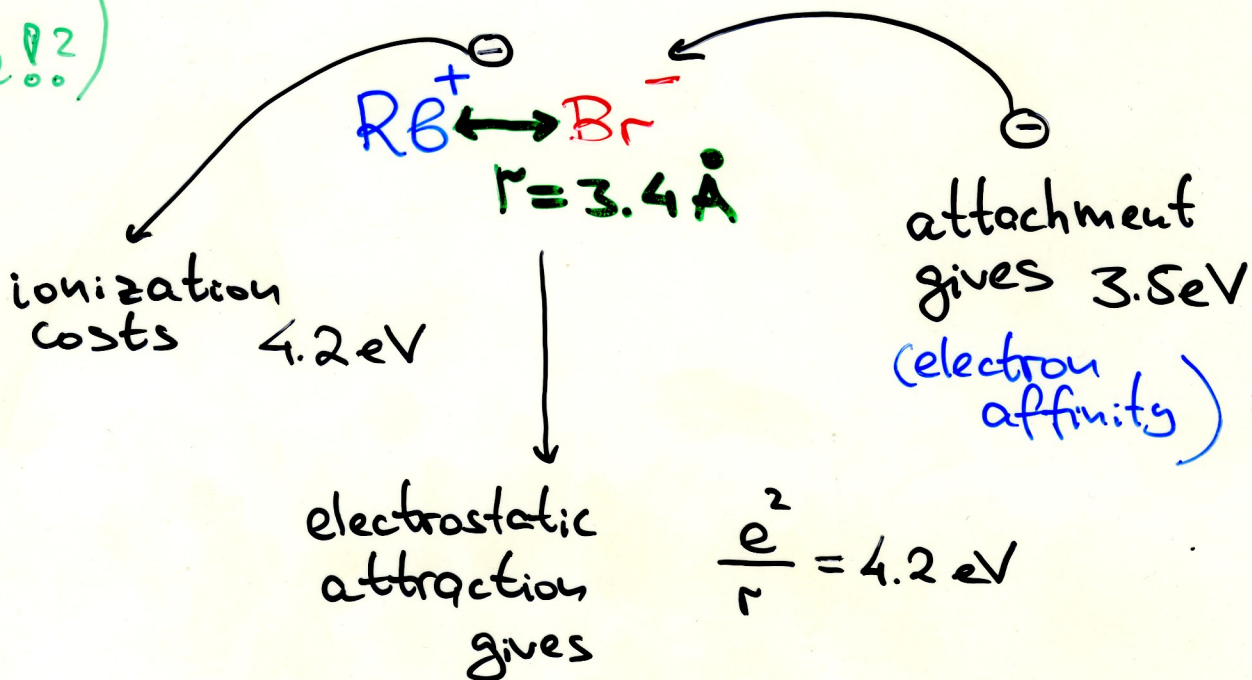 !!?)
Rb⁺ ↔ Br⁻
r = 3.4 Å
ionization
costs 4.2 eV
attachment
gives 3.5eV
(electron
affinity)
electrostatic
attraction
gives
e²/r = 4.2 eV